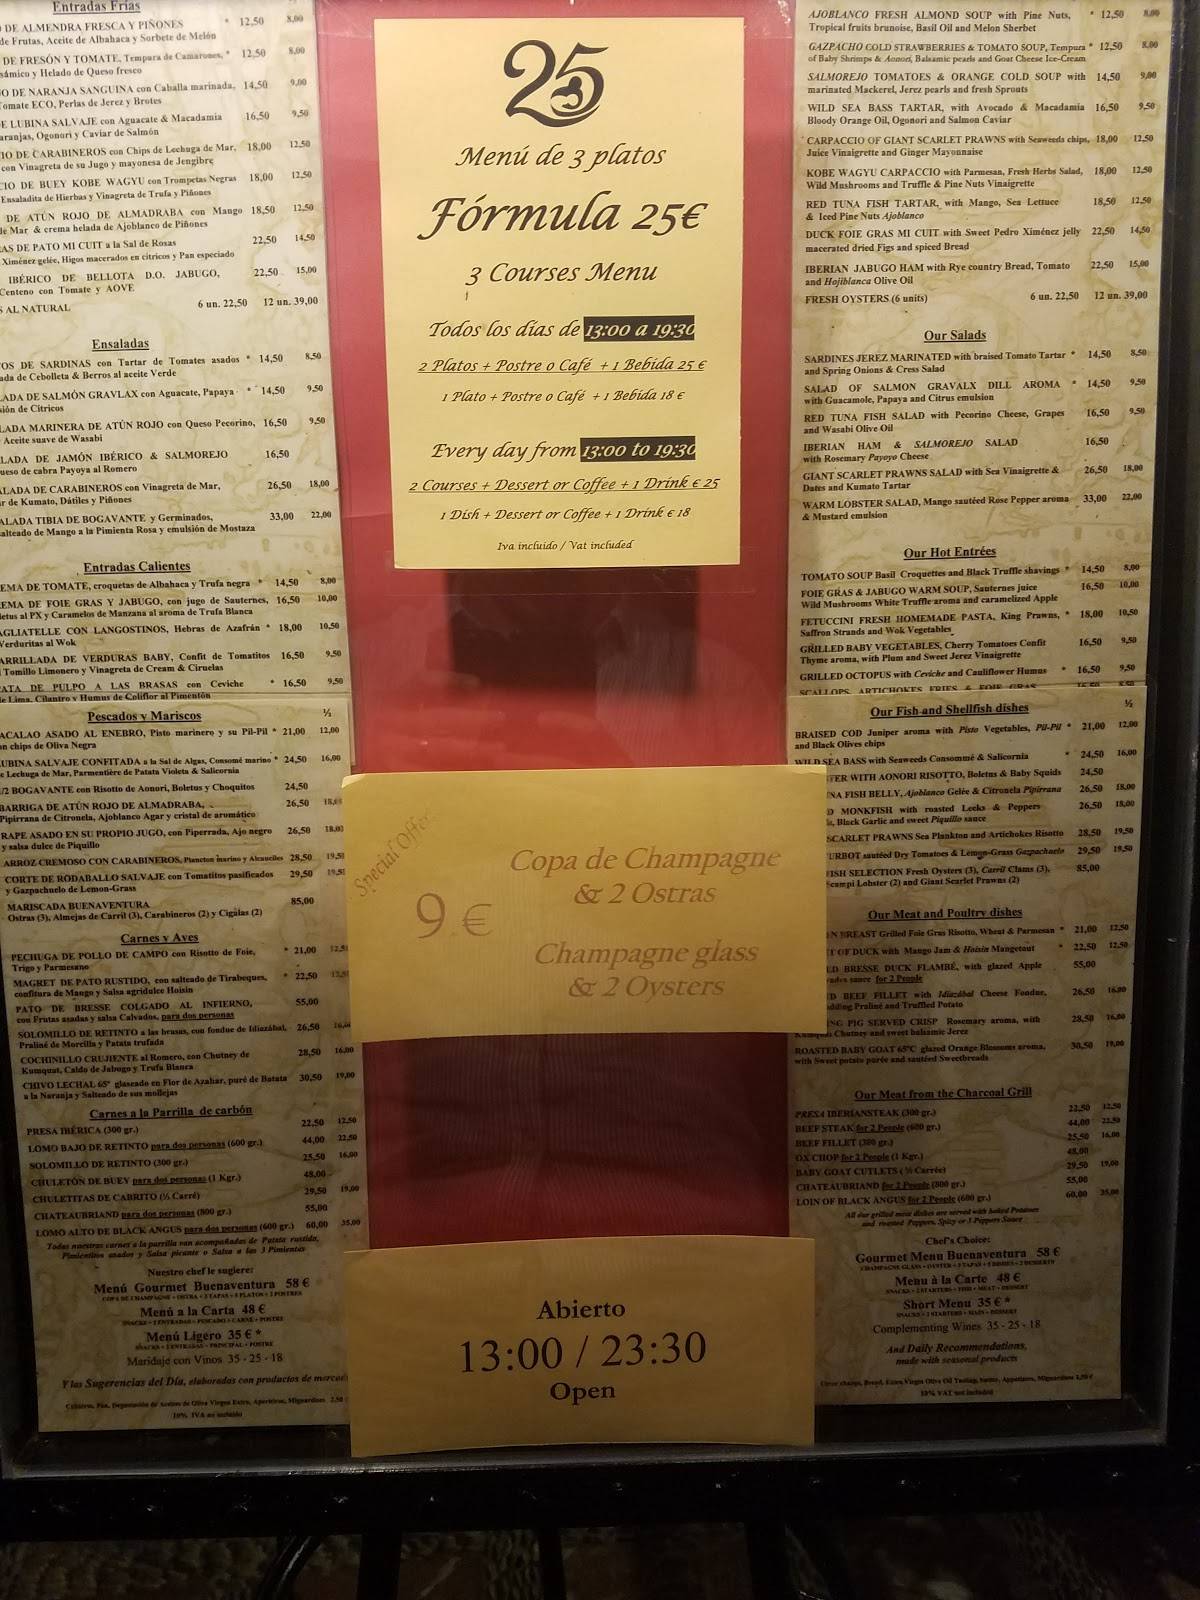 Entradas Frías
DE ALMENDRA FRESCA Y PIÑONES * 12,50 8,00
de Frutas, Aceite de Albahaca y Sorbete de Melón
DE FRESÓN Y TOMATE, Tempura de Camarones, * 12,50 8,00
Helado de Queso fresco
DE NARANJA SANGUINA con Caballa marinada, 14,50 9,00
Tomate ECO, Perlas de Jerez y Brotes
LUBINA SALVAJE con Aguacate & Macadamia 16,50 9,50
Ogonori y Caviar de Salmón
DE CARABINEROS con Chips de Lechuga de Mar, 18,00 12,50
con Vinagreta de su Jugo y mayonesa de Jengibre
DE BUEY KOBE WAGYU con Trompetas Negras 18,00 12,50
Ensaladita de Hierbas y Vinagreta de Trufa y Piñones
DE ATÚN ROJO DE ALMADRABA con Mango 18,50 12,50
de Mar & crema helada de Ajoblanco de Piñones
DE PATO MI CUIT a la Sal de Rosas 22,50 14,50
Ximénez gelée, Higos macerados en cítricos y Pan especiado
IBÉRICO DE BELLOTA D.O. JABUGO, 22,50 15,00
Centeno con Tomate y AOVE
AL NATURAL 6 un. 22,50 12 un. 39,00
Ensaladas
DE SARDINAS con Tartar de Tomates asados * 14,50 8,50
de Cebolleta & Berros al aceite Verde
DE SALMÓN GRAVLAX con Aguacate, Papaya * 14,50 9,50
de Citricos
MARINERA DE ATÚN ROJO con Queso Pecorino, 16,50 9,50
Aceite suave de Wasabi
DE JAMÓN IBÉRICO & SALMOREJO 16,50
de cabra Payoya al Romero
DE CARABINEROS con Vinagreta de Mar, 26,50 18,00
de Kumato, Dátiles y Piñones
TIBIA DE BOGAVANTE y Germinados, 33,00 22,00
de Mango a la Pimienta Rosa y emulsión de Mostaza
Entradas Calientes
DE TOMATE, croquetas de Albahaca y Trufa negra * 14,50 8,00
DE FOIE GRAS Y JABUGO, con jugo de Sauternes, 16,50 10,00
al PX y Caramelos de Manzana al aroma de Trufa Blanca
CON LANGOSTINOS, Hebras de Azafrán * 18,00 10,50
Verduritas al Wok
DE VERDURAS BABY, Confit de Tomatitos 16,50 9,50
Tomillo Limonero y Vinagreta de Cream & Ciruelas
DE PULPO A LAS BRASAS con Ceviche * 16,50 9,50
de Lima, Cilantro y Humus de Coliflor al Pimentón
Pescados y Mariscos ½
ASADO AL ENEBRO, Pisto marinero y su Pil-Pil * 21,00 12,00
chips de Oliva Negra
LUBINA SALVAJE CONFITADA a la Sal de Algas, Consomé marino * 24,50 16,00
Lechuga de Mar, Parmentière de Patata Violeta & Salicornia
1/2 BOGAVANTE con Risotto de Aonori, Boletus y Choquitos 24,50
BARRIGA DE ATÚN ROJO DE ALMADRABA, 26,50 18,00
Pipirrana de Citronela, Ajoblanco Agar y cristal de aromático
RAPE ASADO EN SU PROPIO JUGO, con Piperrada, Ajo negro 26,50 18,00
y salsa dulce de Piquillo
ARROZ CREMOSO CON CARABINEROS, Plancton marino y Alcauciles 28,50 19,50
CORTE DE RODABALLO SALVAJE con Tomatitos pasificados 29,50 19,50
y Gazpachuelo de Lemon-Grass
MARISCADA BUENAVENTURA 85,00
Ostras (3), Almejas de Carril (3), Carabineros (2) y Cigalas (2)
Carnes y Aves
PECHUGA DE POLLO DE CAMPO con Risotto de Foie, * 21,00 12,50
Trigo y Parmesano
MAGRET DE PATO RUSTIDO, con salteado de Tirabeques, * 22,50 12,50
confitura de Mango y Salsa agridulce Hoisin
PATO DE BRESSE COLGADO AL INFIERNO, 55,00
con Frutas asadas y salsa Calvados, para dos personas
SOLOMILLO DE RETINTO a las brasas, con fondue de Idiazábal, 26,50 16,00
Praliné de Morcilla y Patata trufada
COCHINILLO CRUJIENTE al Romero, con Chutney de 28,50 16,00
Kumquat, Caldo de Jabugo y Trufa Blanca
CHIVO LECHAL 65º glaseado en Flor de Azahar, puré de Batata 30,50 19,00
a la Naranja y Salteado de sus mollejas
Carnes a la Parrilla de carbón
PRESA IBÉRICA (300 gr.) 22,50 12,50
LOMO BAJO DE RETINTO para dos personas (600 gr.) 44,00 22,50
SOLOMILLO DE RETINTO (300 gr.) 25,50 16,00
CHULETÓN DE BUEY para dos personas (1 Kgr.) 48,00
CHULETITAS DE CABRITO (½ Carré) 29,50 19,00
CHATEAUBRIAND para dos personas (800 gr.) 55,00
LOMO ALTO DE BLACK ANGUS para dos personas (600 gr.) 60,00 35,00
Todas nuestras carnes a la parrilla van acompañadas de Patata rustida,
Pimientitos asados y Salsa picante o Salsa a las 3 Pimientas
Nuestro chef le sugiere:
Menú Gourmet Buenaventura 58 €
COPA DE CHAMPAGNE + OSTRA + 3 TAPAS + 5 PLATOS + 2 POSTRES
Menú a la Carta 48 €
SNACKS + 2 ENTRADAS + PESCADO + CARNE + POSTRE
Menú Ligero 35 € *
SNACKS + 2 ENTRADAS + PRINCIPAL + POSTRE
Maridaje con Vinos 35 - 25 - 18
Y las Sugerencias del Día, elaboradas con productos de
Cubierto, Pan, Degustación de Aceites de Oliva Virgen Extra, Aperitivos, Mignardises 2,50
10% IVA no incluido
25
Menú de 3 platos
Fórmula 25€
3 Courses Menu
Todos los días de 13:00 a 19:30
2 Platos + Postre o Café + 1 Bebida 25 €
1 Plato + Postre o Café + 1 Bebida 18 €
Every day from 13:00 to 19:30
2 Courses + Dessert or Coffee + 1 Drink € 25
1 Dish + Dessert or Coffee + 1 Drink € 18
Iva incluido / Vat included
Special Offer
9 €
Copa de Champagne
& 2 Ostras
Champagne glass
& 2 Oysters
Abierto
13:00 / 23:30
Open
AJOBLANCO FRESH ALMOND SOUP with Pine Nuts, * 12,50 8,00
Tropical fruits brunoise, Basil Oil and Melon Sherbet
GAZPACHO COLD STRAWBERRIES & TOMATO SOUP, Tempura * 12,50 8,00
of Baby Shrimps & Aonori, Balsamic pearls and Goat Cheese Ice-Cream
SALMOREJO TOMATOES & ORANGE COLD SOUP with 14,50 9,00
marinated Mackerel, Jerez pearls and fresh Sprouts
WILD SEA BASS TARTAR, with Avocado & Macadamia 16,50 9,50
Bloody Orange Oil, Ogonori and Salmon Caviar
CARPACCIO OF GIANT SCARLET PRAWNS with Seaweeds chips, 18,00 12,50
Juice Vinaigrette and Ginger Mayonnaise
KOBE WAGYU CARPACCIO with Parmesan, Fresh Herbs Salad, 18,00 12,50
Wild Mushrooms and Truffle & Pine Nuts Vinaigrette
RED TUNA FISH TARTAR, with Mango, Sea Lettuce 18,50 12,50
& Iced Pine Nuts Ajoblanco
DUCK FOIE GRAS MI CUIT with Sweet Pedro Ximénez jelly 22,50 14,50
macerated dried Figs and spiced Bread
IBERIAN JABUGO HAM with Rye country Bread, Tomato 22,50 15,00
and Hojiblanca Olive Oil
FRESH OYSTERS (6 units) 6 un. 22,50 12 un. 39,00
Our Salads
SARDINES JEREZ MARINATED with braised Tomato Tartar * 14,50 8,50
and Spring Onions & Cress Salad
SALAD OF SALMON GRAVALX DILL AROMA * 14,50 9,50
with Guacamole, Papaya and Citrus emulsion
RED TUNA FISH SALAD with Pecorino Cheese, Grapes 16,50 9,50
and Wasabi Olive Oil
IBERIAN HAM & SALMOREJO SALAD 16,50
with Rosemary Payoyo Cheese
GIANT SCARLET PRAWNS SALAD with Sea Vinaigrette & 26,50 18,00
Dates and Kumato Tartar
WARM LOBSTER SALAD, Mango sautéed Rose Pepper aroma 33,00 22,00
& Mustard emulsion
Our Hot Entrées
TOMATO SOUP Basil Croquettes and Black Truffle shavings * 14,50 8,00
FOIE GRAS & JABUGO WARM SOUP, Sauternes juice 16,50 10,00
Wild Mushrooms White Truffle aroma and caramelized Apple
FETUCCINI FRESH HOMEMADE PASTA, King Prawns, * 18,00 10,50
Saffron Strands and Wok Vegetables
GRILLED BABY VEGETABLES, Cherry Tomatoes Confit 16,50 9,50
Thyme aroma, with Plum and Sweet Jerez Vinaigrette
GRILLED OCTOPUS with Ceviche and Cauliflower Humus * 16,50 9,50
SCALLOPS, ARTICHOKES FRIES & FOIE GRAS
Our Fish and Shellfish dishes ½
BRAISED COD Juniper aroma with Pisto Vegetables, Pil-Pil * 21,00 12,00
and Black Olives chips
WILD SEA BASS with Seaweeds Consommé & Salicornia * 24,50 16,00
WITH AONORI RISOTTO, Boletus & Baby Squids 24,50
FISH BELLY, Ajoblanco Gelée & Citronela Pipirrana 26,50 18,00
MONKFISH with roasted Leeks & Peppers 26,50 18,00
Black Garlic and sweet Piquillo sauce
SCARLET PRAWNS Sea Plankton and Artichokes Risotto 28,50 19,50
sautéed Dry Tomatoes & Lemon-Grass Gazpachuelo 29,50 19,50
SELECTION Fresh Oysters (3), Carril Clams (3), 85,00
Lobster (2) and Giant Scarlet Prawns (2)
Our Meat and Poultry dishes
BREAST Grilled Foie Gras Risotto, Wheat & Parmesan * 21,00 12,50
OF DUCK with Mango Jam & Hoisin Mangetout * 22,50 12,50
BRESSE DUCK FLAMBÉ, with glazed Apple 55,00
sauce for 2 People
BEEF FILLET with Idiazábal Cheese Fondue, 26,50 16,00
Praliné and Truffled Potato
PIG SERVED CRISP Rosemary aroma, with 28,50 16,00
Kumquats Chutney and sweet balsamic Jerez
ROASTED BABY GOAT 65ºC glazed Orange Blossoms aroma, 30,50 19,00
with Sweet potato purée and sautéed Sweetbreads
Our Meat from the Charcoal Grill
PRESA IBERIANSTEAK (300 gr.) 22,50 12,50
BEEF STEAK for 2 People (600 gr.) 44,00 22,50
BEEF FILLET (300 gr.) 25,50 16,00
OX CHOP for 2 People (1 Kgr.) 48,00
BABY GOAT CUTLETS (½ Carrée) 29,50 19,00
CHATEAUBRIAND for 2 People (800 gr.) 55,00
LOIN OF BLACK ANGUS for 2 People (600 gr.) 60,00 35,00
All our grilled meat dishes are served with baked Potatoes
and roasted Peppers, Spicy or 3 Peppers Sauce
Chef's Choice:
Gourmet Menu Buenaventura 58 €
CHAMPAGNE GLASS + OYSTER + 3 TAPAS + 5 DISHES + 2 DESSERTS
Menu à la Carte 48 €
SNACKS + 2 STARTERS + FISH + MEAT + DESSERT
Short Menu 35 € *
SNACKS + 2 STARTERS + MAIN + DESSERT
Complementing Wines 35 - 25 - 18
And Daily Recommendations,
made with seasonal products
Cover charge, Bread, Extra Virgin Olive Oil Tasting, Appetizers, Mignardises 2,50 €
10% VAT not included